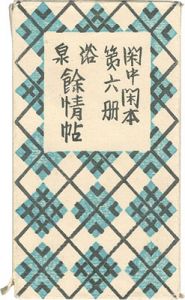 閑中閑本
第六册
浴泉餘情帖